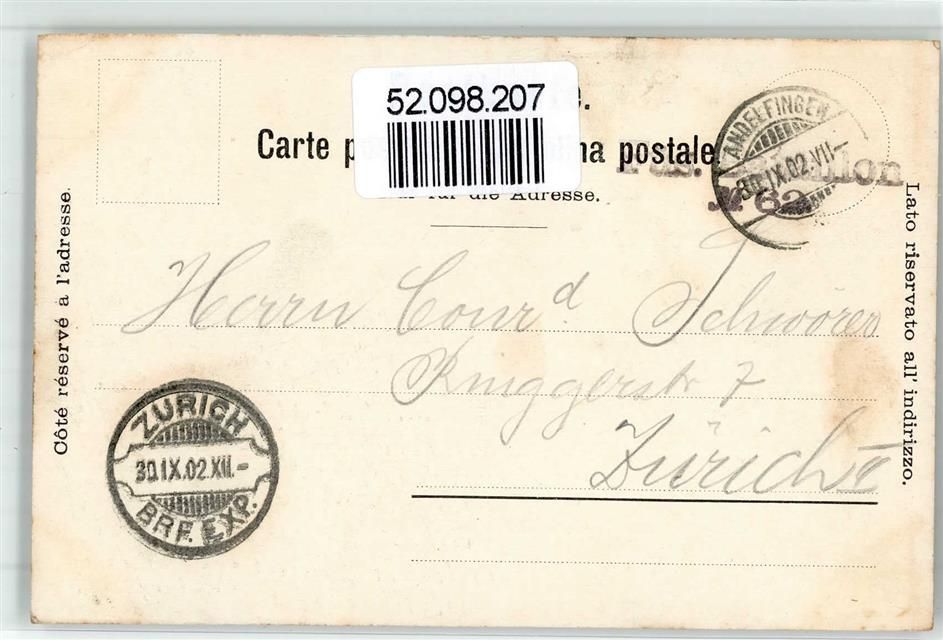 52.098.207
Carte p na postale
für die Adresse.
ANDELFINGEN
30.IX.02.VII.-
Fus. Bataillon
№ 62
Côté réservé à l'adresse.
Lato riservato all' indirizzo.
Herrn Conrd Schwörer
7
Zürich I
ZÜRICH
30.IX.02.XII.-
BRF. EXP.